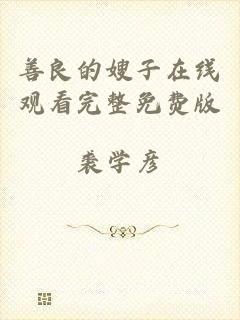 善良的嫂子在线
观看完整免费版
裘学彦